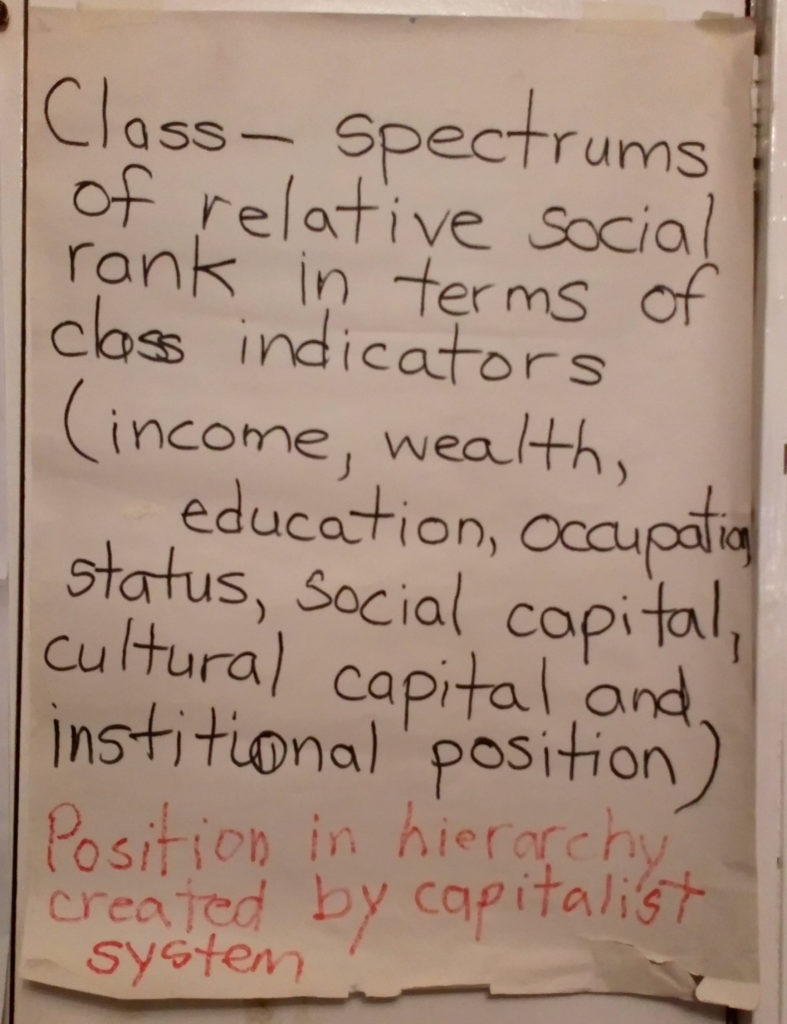 Class— spectrums
of relative social
rank in terms of
class indicators
(income, wealth,
education, occupation,
status, social capital,
cultural capital and
institional position)
Position in hierarchy
created by capitalist
system